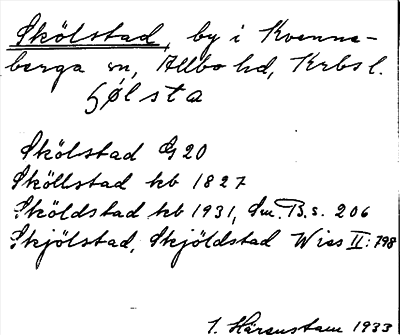 Skölstad, by i Kvenne-
berga sn, Allbo hd, Krbs l.
ʃølsta
Skölstad G 20
Sköllstad kb 1827
Sköldstad kb 1931, Sm. B. s. 206
Skjölstad, Skjöldstad Wies II: 798
1933